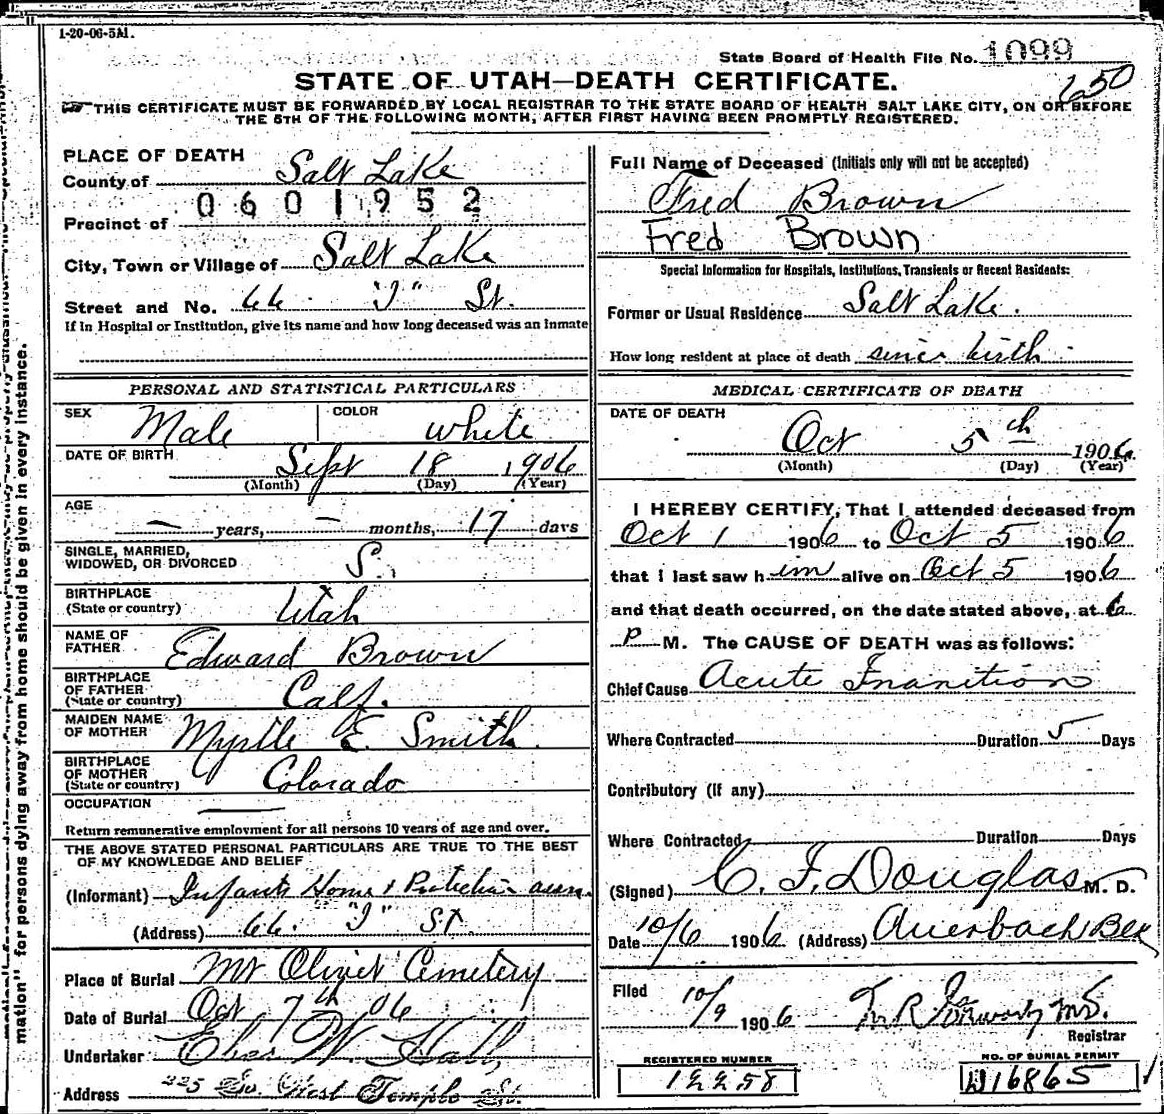 1-20-06-5M.
State Board of Health File No. 1099
STATE OF UTAH—DEATH CERTIFICATE.
650
THIS CERTIFICATE MUST BE FORWARDED BY LOCAL REGISTRAR TO THE STATE BOARD OF HEALTH SALT LAKE CITY, ON OR BEFORE
THE 5TH OF THE FOLLOWING MONTH, AFTER FIRST HAVING BEEN PROMPTLY REGISTERED.
PLACE OF DEATH
County of Salt Lake
0601952
Precinct of
City, Town or Village of Salt Lake
Street and No. 66 "J" St.
If in Hospital or Institution, give its name and how long deceased was an inmate
PERSONAL AND STATISTICAL PARTICULARS
SEX Male COLOR white
DATE OF BIRTH Sept 18 1906
(Month) (Day) (Year)
AGE
— years, — months, 17 days
SINGLE, MARRIED,
WIDOWED, OR DIVORCED S.
BIRTHPLACE
(State or country) Utah
NAME OF
FATHER Edward Brown
BIRTHPLACE
OF FATHER
(State or country) Calf.
MAIDEN NAME
OF MOTHER Myrtle E. Smith
BIRTHPLACE
OF MOTHER
(State or country) Colorado
OCCUPATION —
Return remunerative employment for all persons 10 years of age and over.
THE ABOVE STATED PERSONAL PARTICULARS ARE TRUE TO THE BEST
OF MY KNOWLEDGE AND BELIEF
(Informant) Infants Home & Protection assn.
(Address) 66. "J" St
Place of Burial Mt Olivet Cemetery
Date of Burial Oct 7th 06
Undertaker Chas W. Hall
Address 225 So. West Temple St.
Full Name of Deceased (Initials only will not be accepted)
Fred Brown
Fred Brown
Special Information for Hospitals, Institutions, Transients or Recent Residents:
Former or Usual Residence Salt Lake.
How long resident at place of death since birth
MEDICAL CERTIFICATE OF DEATH
DATE OF DEATH
Oct 5th 1906
(Month) (Day) (Year)
I HEREBY CERTIFY, That I attended deceased from
Oct 1 1906 to Oct 5 1906
that I last saw him alive on Oct 5 1906
and that death occurred, on the date stated above, at 6
P M. The CAUSE OF DEATH was as follows:
Chief Cause Acute Inanition
Where Contracted Duration 5 Days
Contributory (if any)
Where Contracted Duration Days
(Signed) C. F. Douglas M. D.
Date 10/6 1906 (Address) Auerbach
Filed 10/9 1906
Registrar
REGISTERED NUMBER
12258
NO. OF BURIAL PERMIT
16865
mation" for persons dying away from home should be given in every instance.